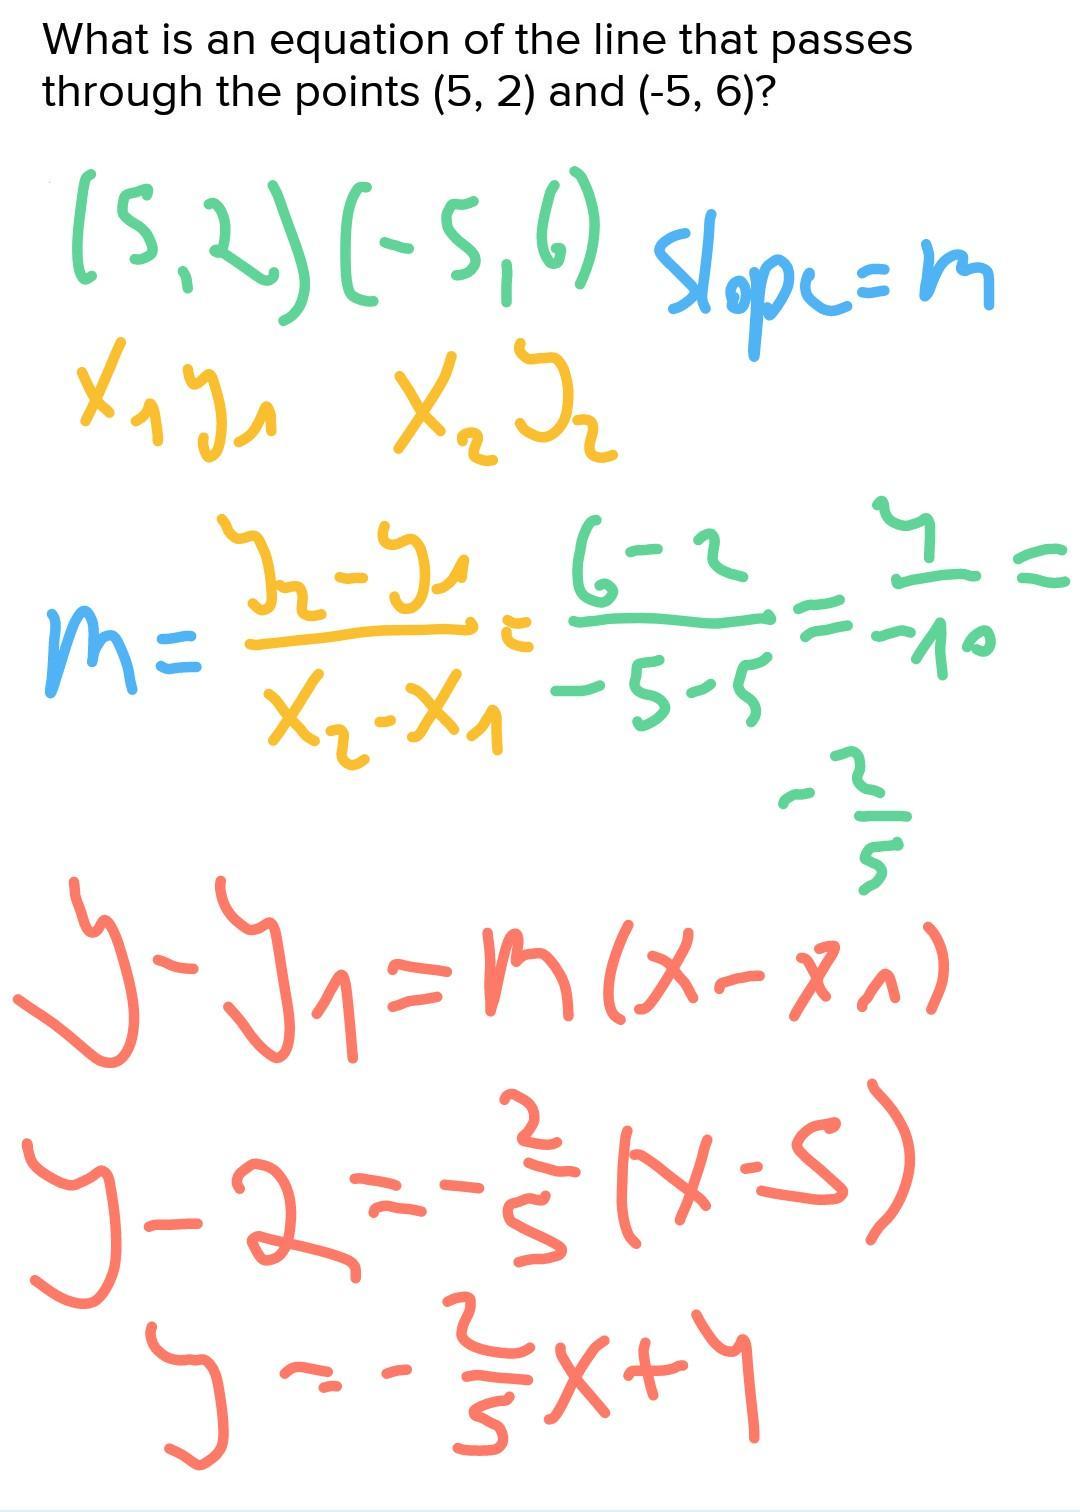 What is an equation of the line that passes
through the points (5, 2) and (-5, 6)?
(5,2) (-5,6) slope=m
x₁ y₁ x₂ y₂
m = y₂-y₁/x₂-x₁ = 6-2/-5-5 = 4/-10 =
-2/5
y-y₁=m(x-x₁)
y-2=-2/5(x-5)
y=-2/5x+4